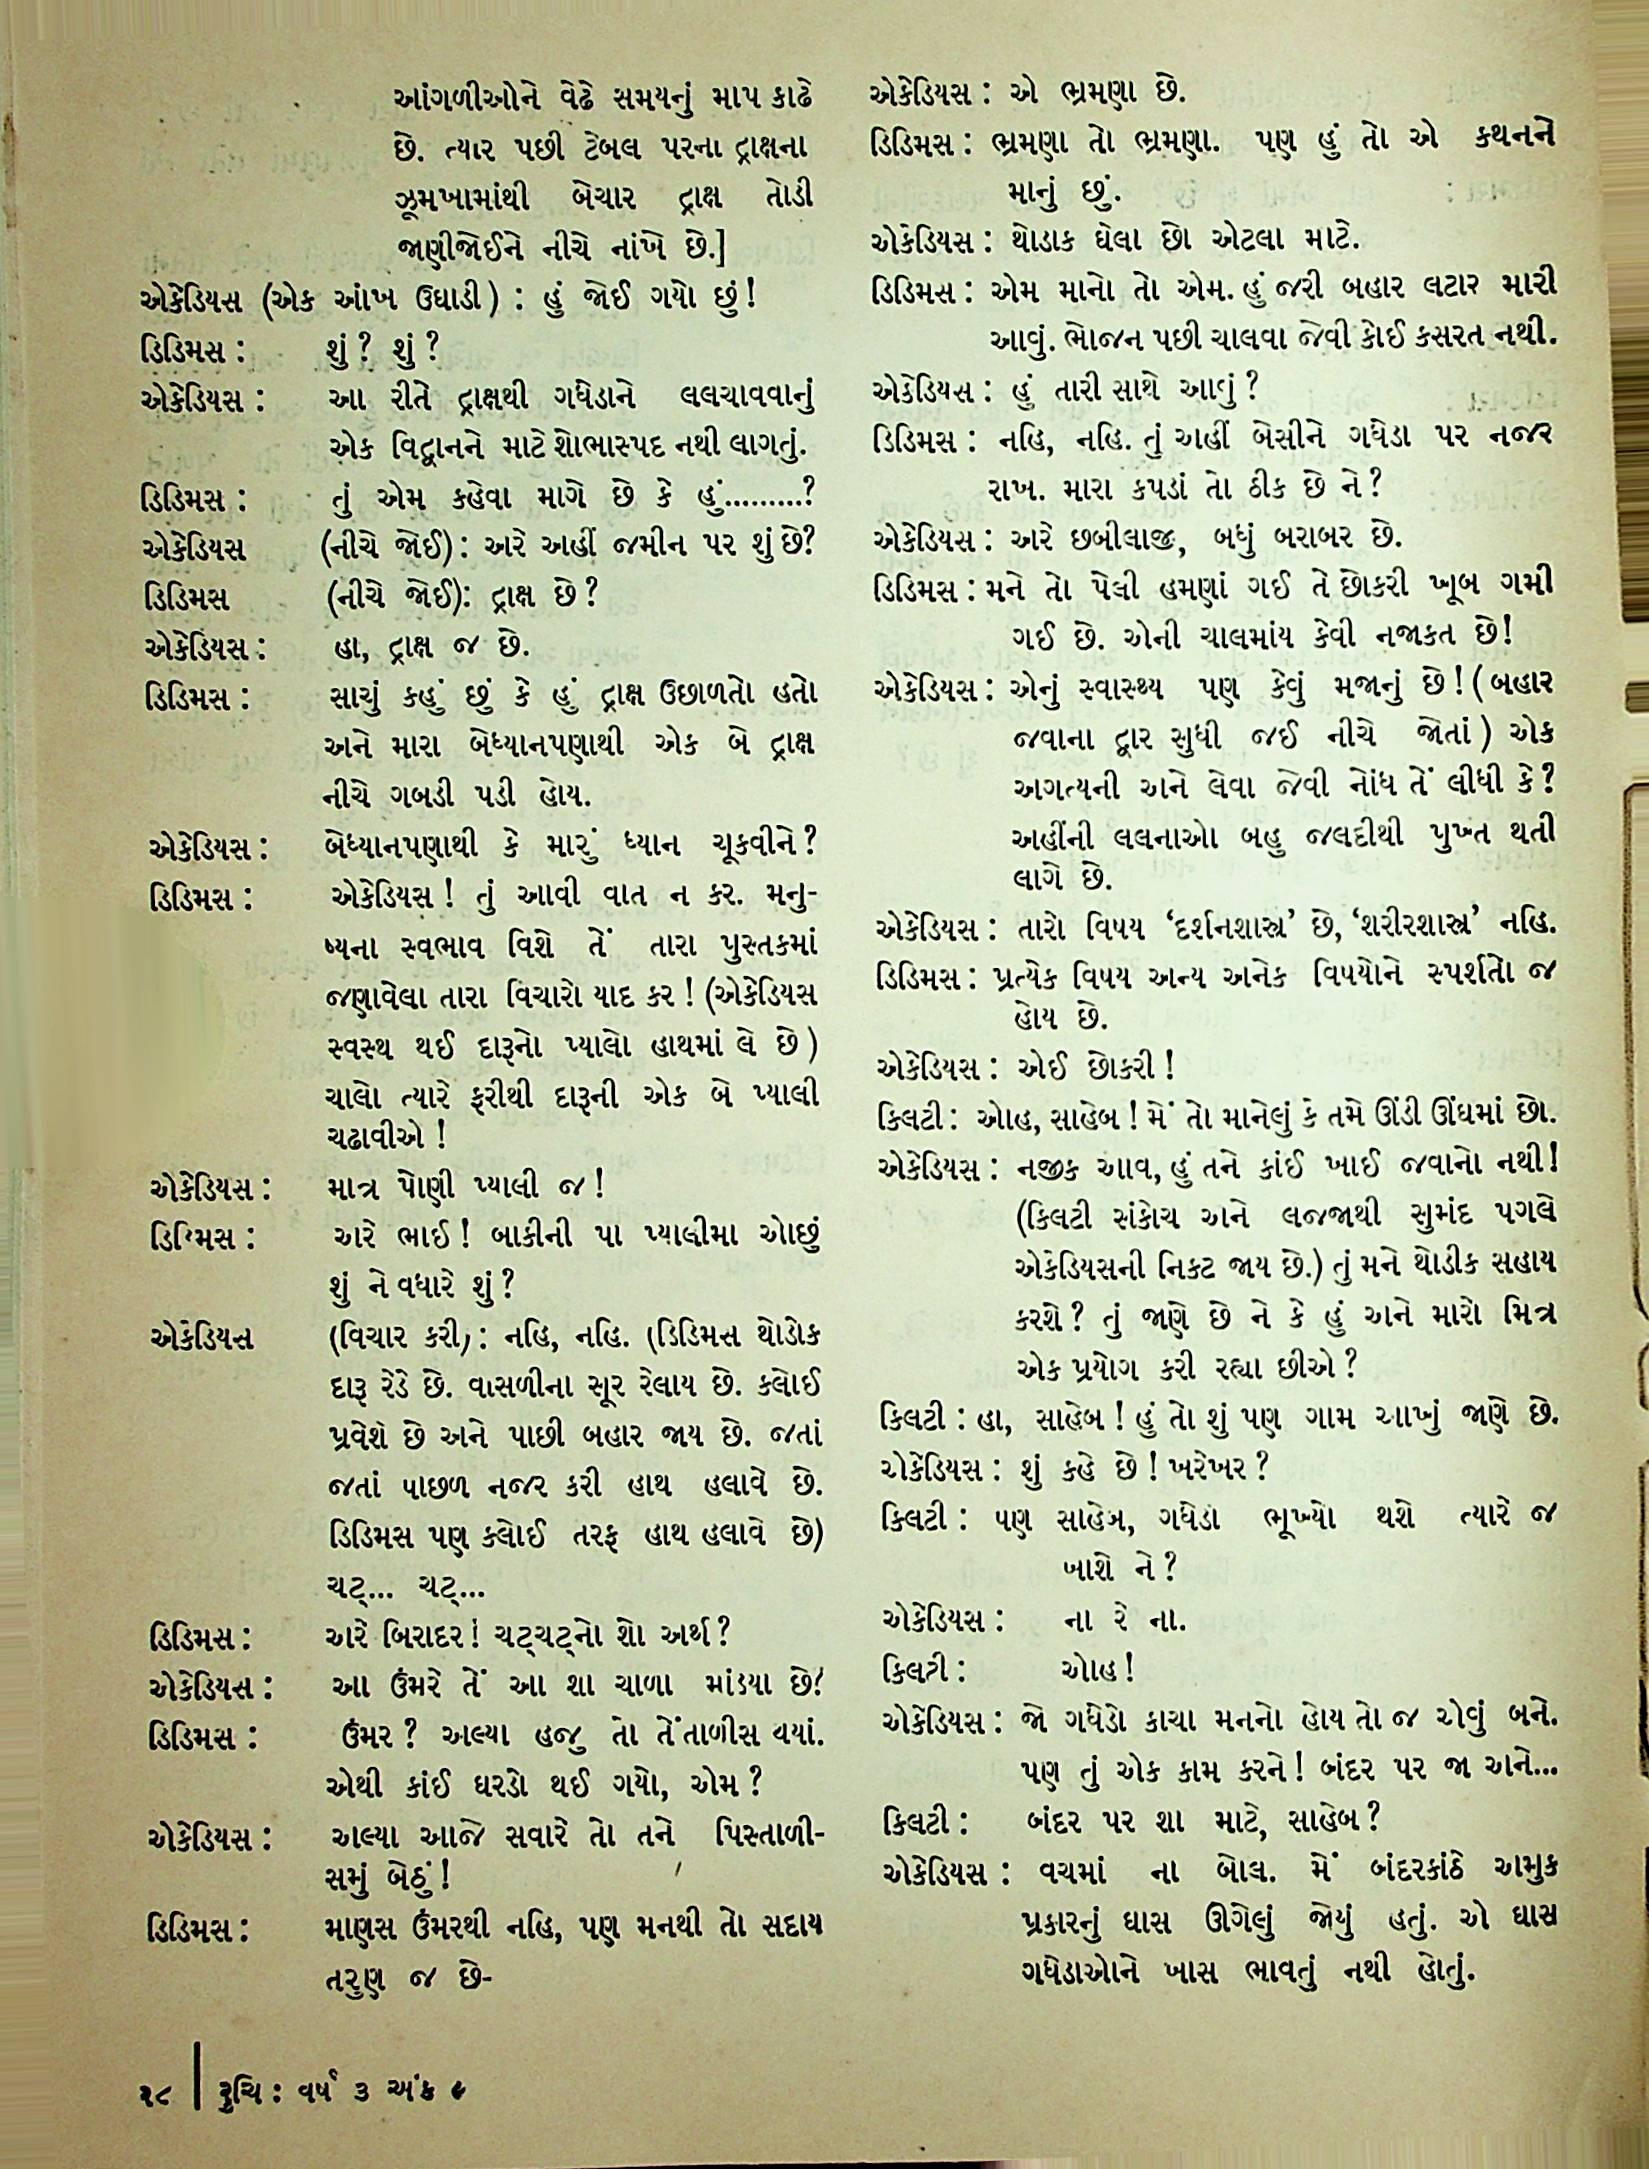 આંગળીઓને વેઢે સમયનું માપ કાઢે
છે. ત્યાર પછી ટેબલ પરના દ્રાક્ષના
ઝૂમખામાંથી બેચાર દ્રાક્ષ તોડી
જાણીજોઈને નીચે નાંખે છે.]
એકેડિયસ (એક આંખ ઉઘાડી) : હું જોઈ ગયો છું!
ડિડિમસ : શું? શું?
એકેડિયસ : આ રીતે દ્રાક્ષથી ગધેડાને લલચાવવાનું
એક વિદ્વાનને માટે શોભાસ્પદ નથી લાગતું.
ડિડિમસ : તું એમ કહેવા માગે છે કે હું.........?
એકેડિયસ (નીચે જોઈ): અરે અહીં જમીન પર શું છે?
ડિડિમસ (નીચે જોઈ): દ્રાક્ષ છે?
એકેડિયસ : હા, દ્રાક્ષ જ છે.
ડિડિમસ : સાચું કહું છું કે હું દ્રાક્ષ ઉછાળતો હતો
અને મારા બેધ્યાનપણાથી એક બે દ્રાક્ષ
નીચે ગબડી પડી હોય.
એકેડિયસ : બેધ્યાનપણાથી કે મારું ધ્યાન ચૂકવીને?
ડિડિમસ : એકેડિયસ! તું આવી વાત ન કર. મનુ-
ષ્યના સ્વભાવ વિશે તેં તારા પુસ્તકમાં
જણાવેલા તારા વિચારો યાદ કર! (એકેડિયસ
સ્વસ્થ થઈ દારૂનો પ્યાલો હાથમાં લે છે)
ચાલો ત્યારે ફરીથી દારૂની એક બે પ્યાલી
ચઢાવીએ!
એકેડિયસ : માત્ર પોણી પ્યાલી જ!
ડિડિમસ : અરે ભાઈ! બાકીની પા પ્યાલીમા ઓછું
શું ને વધારે શું?
એકેડિયસ (વિચાર કરી): નહિ, નહિ. (ડિડિમસ થોડોક
દારૂ રેડે છે. વાસળીના સૂર રેલાય છે. ક્લોઈ
પ્રવેશે છે અને પાછી બહાર જાય છે. જતાં
જતાં પાછળ નજર કરી હાથ હલાવે છે.
ડિડિમસ પણ ક્લોઈ તરફ હાથ હલાવે છે)
ચટ્... ચટ્...
ડિડિમસ : અરે બિરાદર! ચટ્ચટ્નો શો અર્થ?
એકેડિયસ : આ ઉંમરે તેં આ શા ચાળા માંડયા છે!
ડિડિમસ : ઉંમર? અલ્યા હજુ તો તેંતાળીસ થયાં.
એથી કાંઈ ઘરડો થઈ ગયો, એમ?
એકેડિયસ : અલ્યા આજે સવારે તો તને પિસ્તાળી-
સમું બેઠું!
ડિડિમસ : માણસ ઉંમરથી નહિ, પણ મનથી તો સદાય
તરુણ જ છે-
એકેડિયસ : એ ભ્રમણા છે.
ડિડિમસ : ભ્રમણા તો ભ્રમણા. પણ હું તો એ કથનને
માનું છું.
એકેડિયસ : થોડાક ઘેલા છો એટલા માટે.
ડિડિમસ : એમ માનો તો એમ. હું જરી બહાર લટાર મારી
આવું. ભોજન પછી ચાલવા જેવી કોઈ કસરત નથી.
એકેડિયસ : હું તારી સાથે આવું?
ડિડિમસ : નહિ, નહિ. તું અહીં બેસીને ગધેડા પર નજર
રાખ. મારા કપડાં તો ઠીક છે ને?
એકેડિયસ : અરે છબીલાજી, બધું બરાબર છે.
ડિડિમસ : મને તો પેલી હમણાં ગઈ તે છોકરી ખૂબ ગમી
ગઈ છે. એની ચાલમાંય કેવી નજાકત છે!
એકેડિયસ : એનું સ્વાસ્થ્ય પણ કેવું મજાનું છે! (બહાર
જવાના દ્વાર સુધી જઈ નીચે જોતાં) એક
અગત્યની અને લેવા જેવી નોંધ તેં લીધી કે?
અહીંની લલનાઓ બહુ જલદીથી પુખ્ત થતી
લાગે છે.
એકેડિયસ : તારો વિષય ‘દર્શનશાસ્ત્ર’ છે, ‘શરીરશાસ્ત્ર’ નહિ.
ડિડિમસ : પ્રત્યેક વિષય અન્ય અનેક વિષયોને સ્પર્શતો જ
હોય છે.
એકેડિયસ : એઈ છોકરી!
કિલટી : ઓહ, સાહેબ! મેં તો માનેલું કે તમે ઊંડી ઊંઘમાં છો.
એકેડિયસ : નજીક આવ, હું તને કાંઈ ખાઈ જવાનો નથી!
(કિલટી સંકોચ અને લજ્જાથી સુમંદ પગલે
એકેડિયસની નિકટ જાય છે.) તું મને થોડીક સહાય
કરશે? તું જાણે છે ને કે હું અને મારો મિત્ર
એક પ્રયોગ કરી રહ્યા છીએ?
કિલટી : હા, સાહેબ! હું તો શું પણ ગામ આખું જાણે છે.
એકેડિયસ : શું કહે છે! ખરેખર?
કિલટી : પણ સાહેબ, ગધેડો ભૂખ્યો થશે ત્યારે જ
ખાશે ને?
એકેડિયસ : ના રે ના.
કિલટી : ઓહ!
એકેડિયસ : જો ગધેડો કાચા મનનો હોય તો જ એવું બને.
પણ તું એક કામ કરને! બંદર પર જા અને...
કિલટી : બંદર પર શા માટે, સાહેબ?
એકેડિયસ : વચમાં ના બોલ. મેં બંદરકાંઠે અમુક
પ્રકારનું ઘાસ ઊગેલું જોયું હતું. એ ઘાસ
ગધેડાઓને ખાસ ભાવતું નથી હોતું.
૨૮ | રુચિ : વર્ષ ૩ અંક